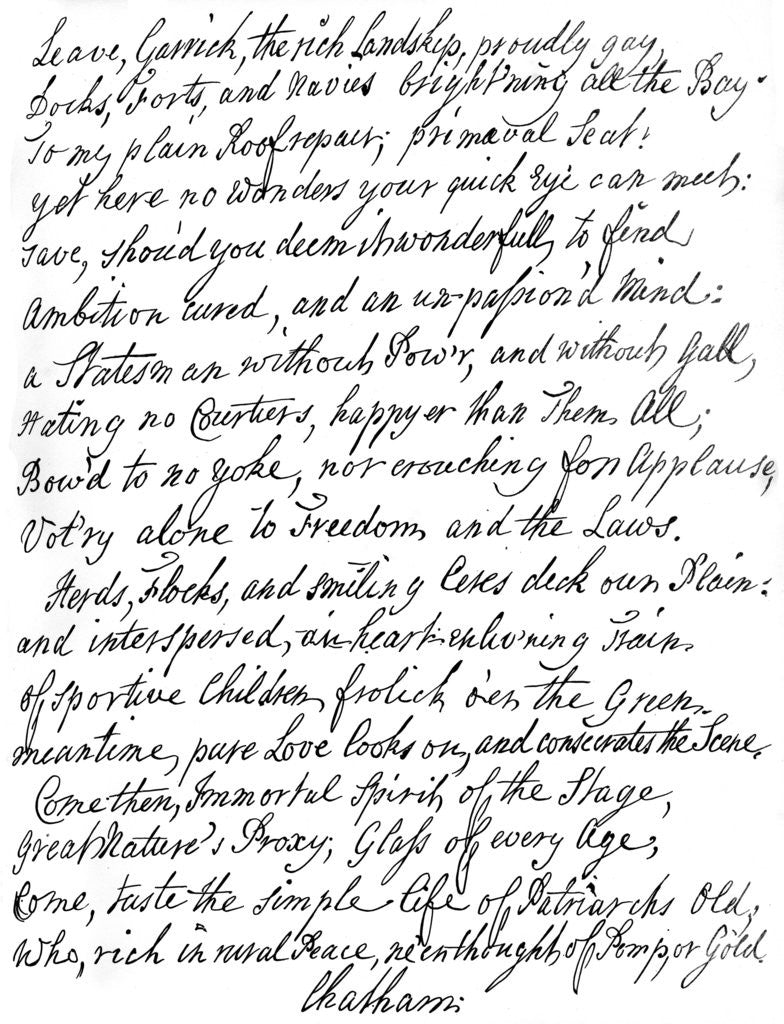 Leave, Garrick, the rich Landskip, proudly gay,
Docks, Forts, and Navies bright'ning all the Bay.
To my plain Roof repair; primæval Seat!
yet here no wonders your quick Eye can meet:
save, shou'd you deem it wonderfull, to find
Ambition cured, and an un-passion'd Mind:
a Statesman without Pow'r, and without Gall,
Hating no Courtiers, happyer than Them All;
Bow'd to no yoke, nor crouching for Applause,
Vot'ry alone to Freedom, and the Laws.
Herds, Flocks, and smiling Ceres deck our Plain:
and interspersed, an heart-enliv'ning Train
of sportive Children frolick o'er the Green.
meantime, pure Love looks on, and consecrates the Scene.
Come then, Immortal Spirit of the Stage,
Great Nature's Proxy, Glass of every Age,
Come, taste the simple life of Patriarchs Old,
Who, rich in rural Peace, ne'er thought of Pomp, or Gold.
Chatham.